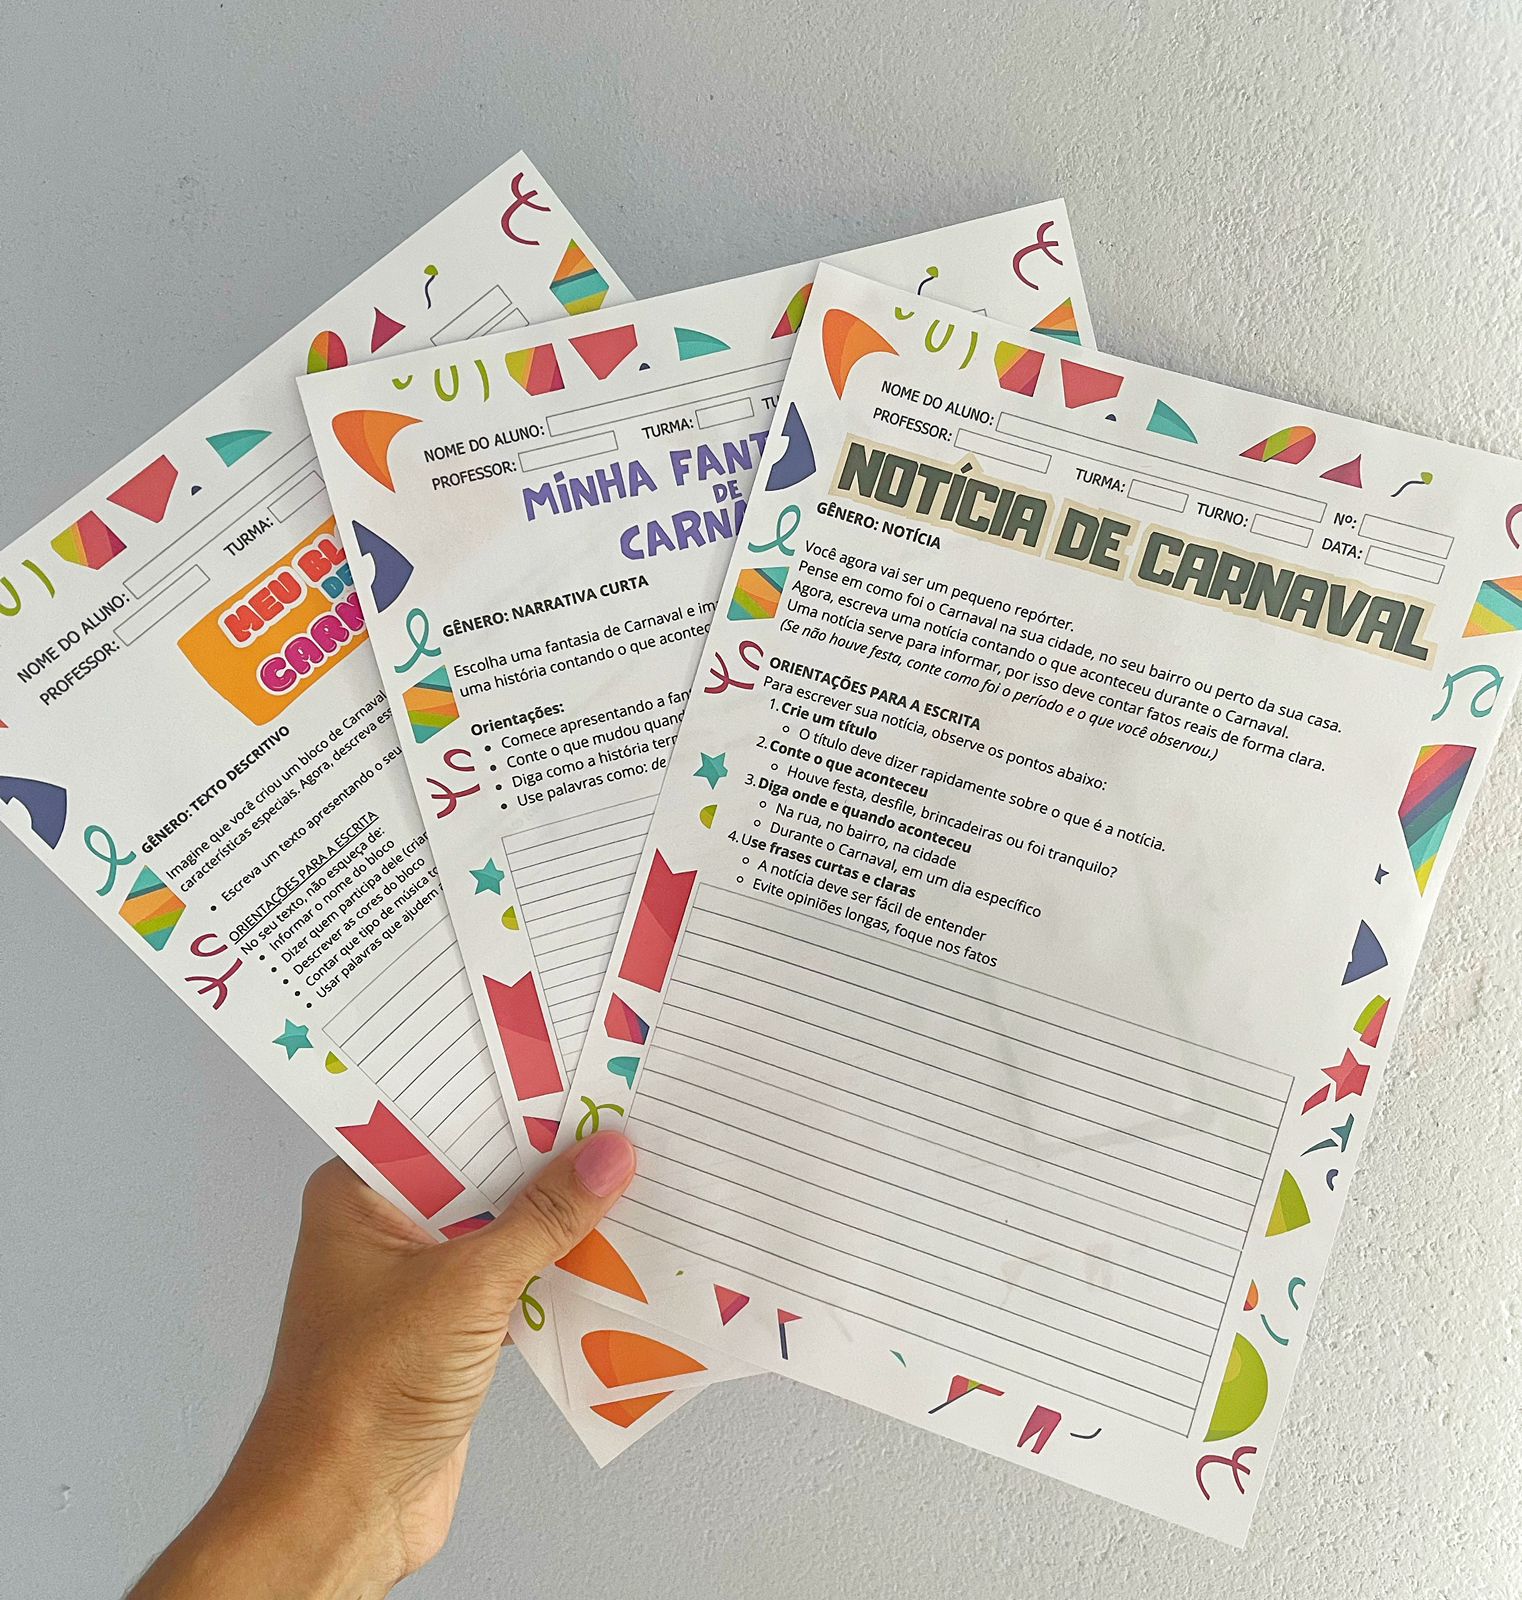 NOME DO ALUNO:
PROFESSOR:
TURMA:
MEU
DE
GÊNERO: TEXTO DESCRITIVO
Imagine que você criou um bloco de Carnaval
características especiais. Agora, descreva
• Escreva um texto apresentando o seu
ORIENTAÇÕES PARA A ESCRITA
No seu texto, não esqueça de:
• Informar o nome do bloco
• Dizer quem participa dele
• Descrever as cores do bloco
• Contar que tipo de música
• Usar palavras que ajudem
NOME DO ALUNO:
PROFESSOR:
TURMA:
MINHA
DE
GÊNERO: NARRATIVA CURTA
Escolha uma fantasia de Carnaval e
uma história contando o que
Orientações:
• Comece apresentando a
• Conte o que mudou
• Diga como a história
• Use palavras como:
NOME DO ALUNO:
PROFESSOR:
TURMA:
TURNO:
Nº:
DATA:
NOTÍCIA DE CARNAVAL
GÊNERO: NOTÍCIA
Você agora vai ser um pequeno repórter.
Pense em como foi o Carnaval na sua cidade, no seu bairro ou perto da sua casa.
Agora, escreva uma notícia contando o que aconteceu durante o Carnaval.
Uma notícia serve para informar, por isso deve contar fatos reais de forma clara.
(Se não houve festa, conte como foi o período e o que você observou.)
ORIENTAÇÕES PARA A ESCRITA
Para escrever sua notícia, observe os pontos abaixo:
1. Crie um título
O título deve dizer rapidamente sobre o que é a notícia.
2. Conte o que aconteceu
Houve festa, desfile, brincadeiras ou foi tranquilo?
3. Diga onde e quando aconteceu
Na rua, no bairro, na cidade
Durante o Carnaval, em um dia específico
4. Use frases curtas e claras
A notícia deve ser fácil de entender
Evite opiniões longas, foque nos fatos